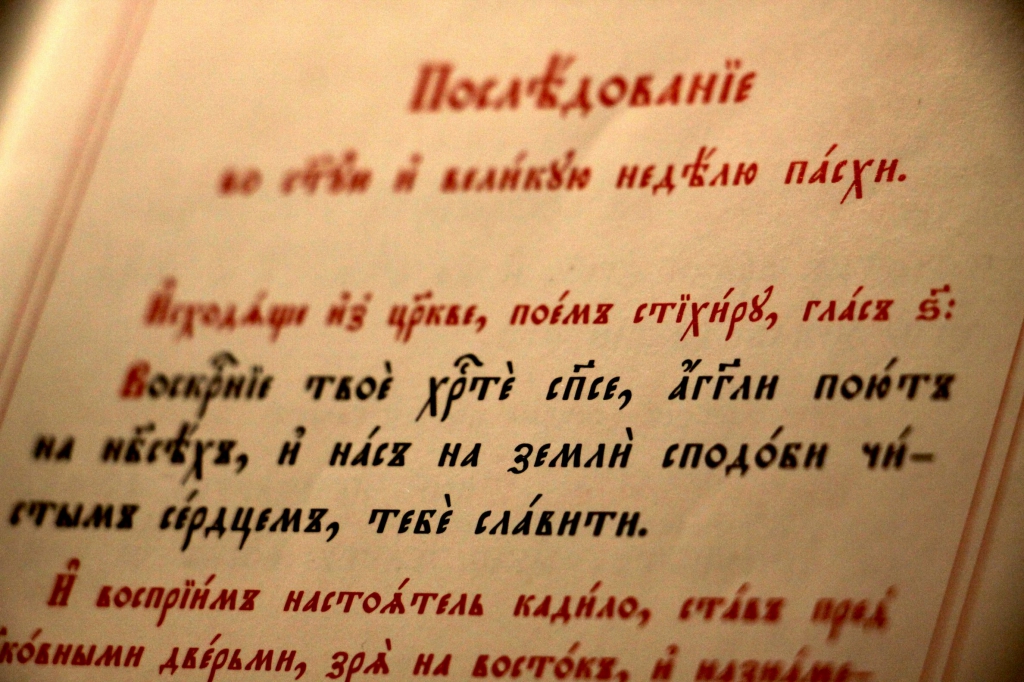 Послѣ́дованїе
во ст҃ꙋ́ю и҆ вели́кꙋю недѣ́лю па́схи.
И҆сходѧ́ще и҆з̾ цр҃кве, пое́мъ стїхи́рꙋ, гла́съ ѕ҃:
Воскрⷭ҇нїе твоѐ хрⷭ҇тѐ сп҃се, а҆́гг҃ли пою́тъ
на нб҃сѣ́хъ, и҆ на́съ на землѝ сподо́би чи́-
стымъ се́рдцемъ, тебѐ сла́вити.
И҆ воспрїи́мъ настоѧ́тель кади́ло, ста́въ пред̾
ко́вными две́рьми, зрѧ̀ на восто́къ, и҆ назна́ме-